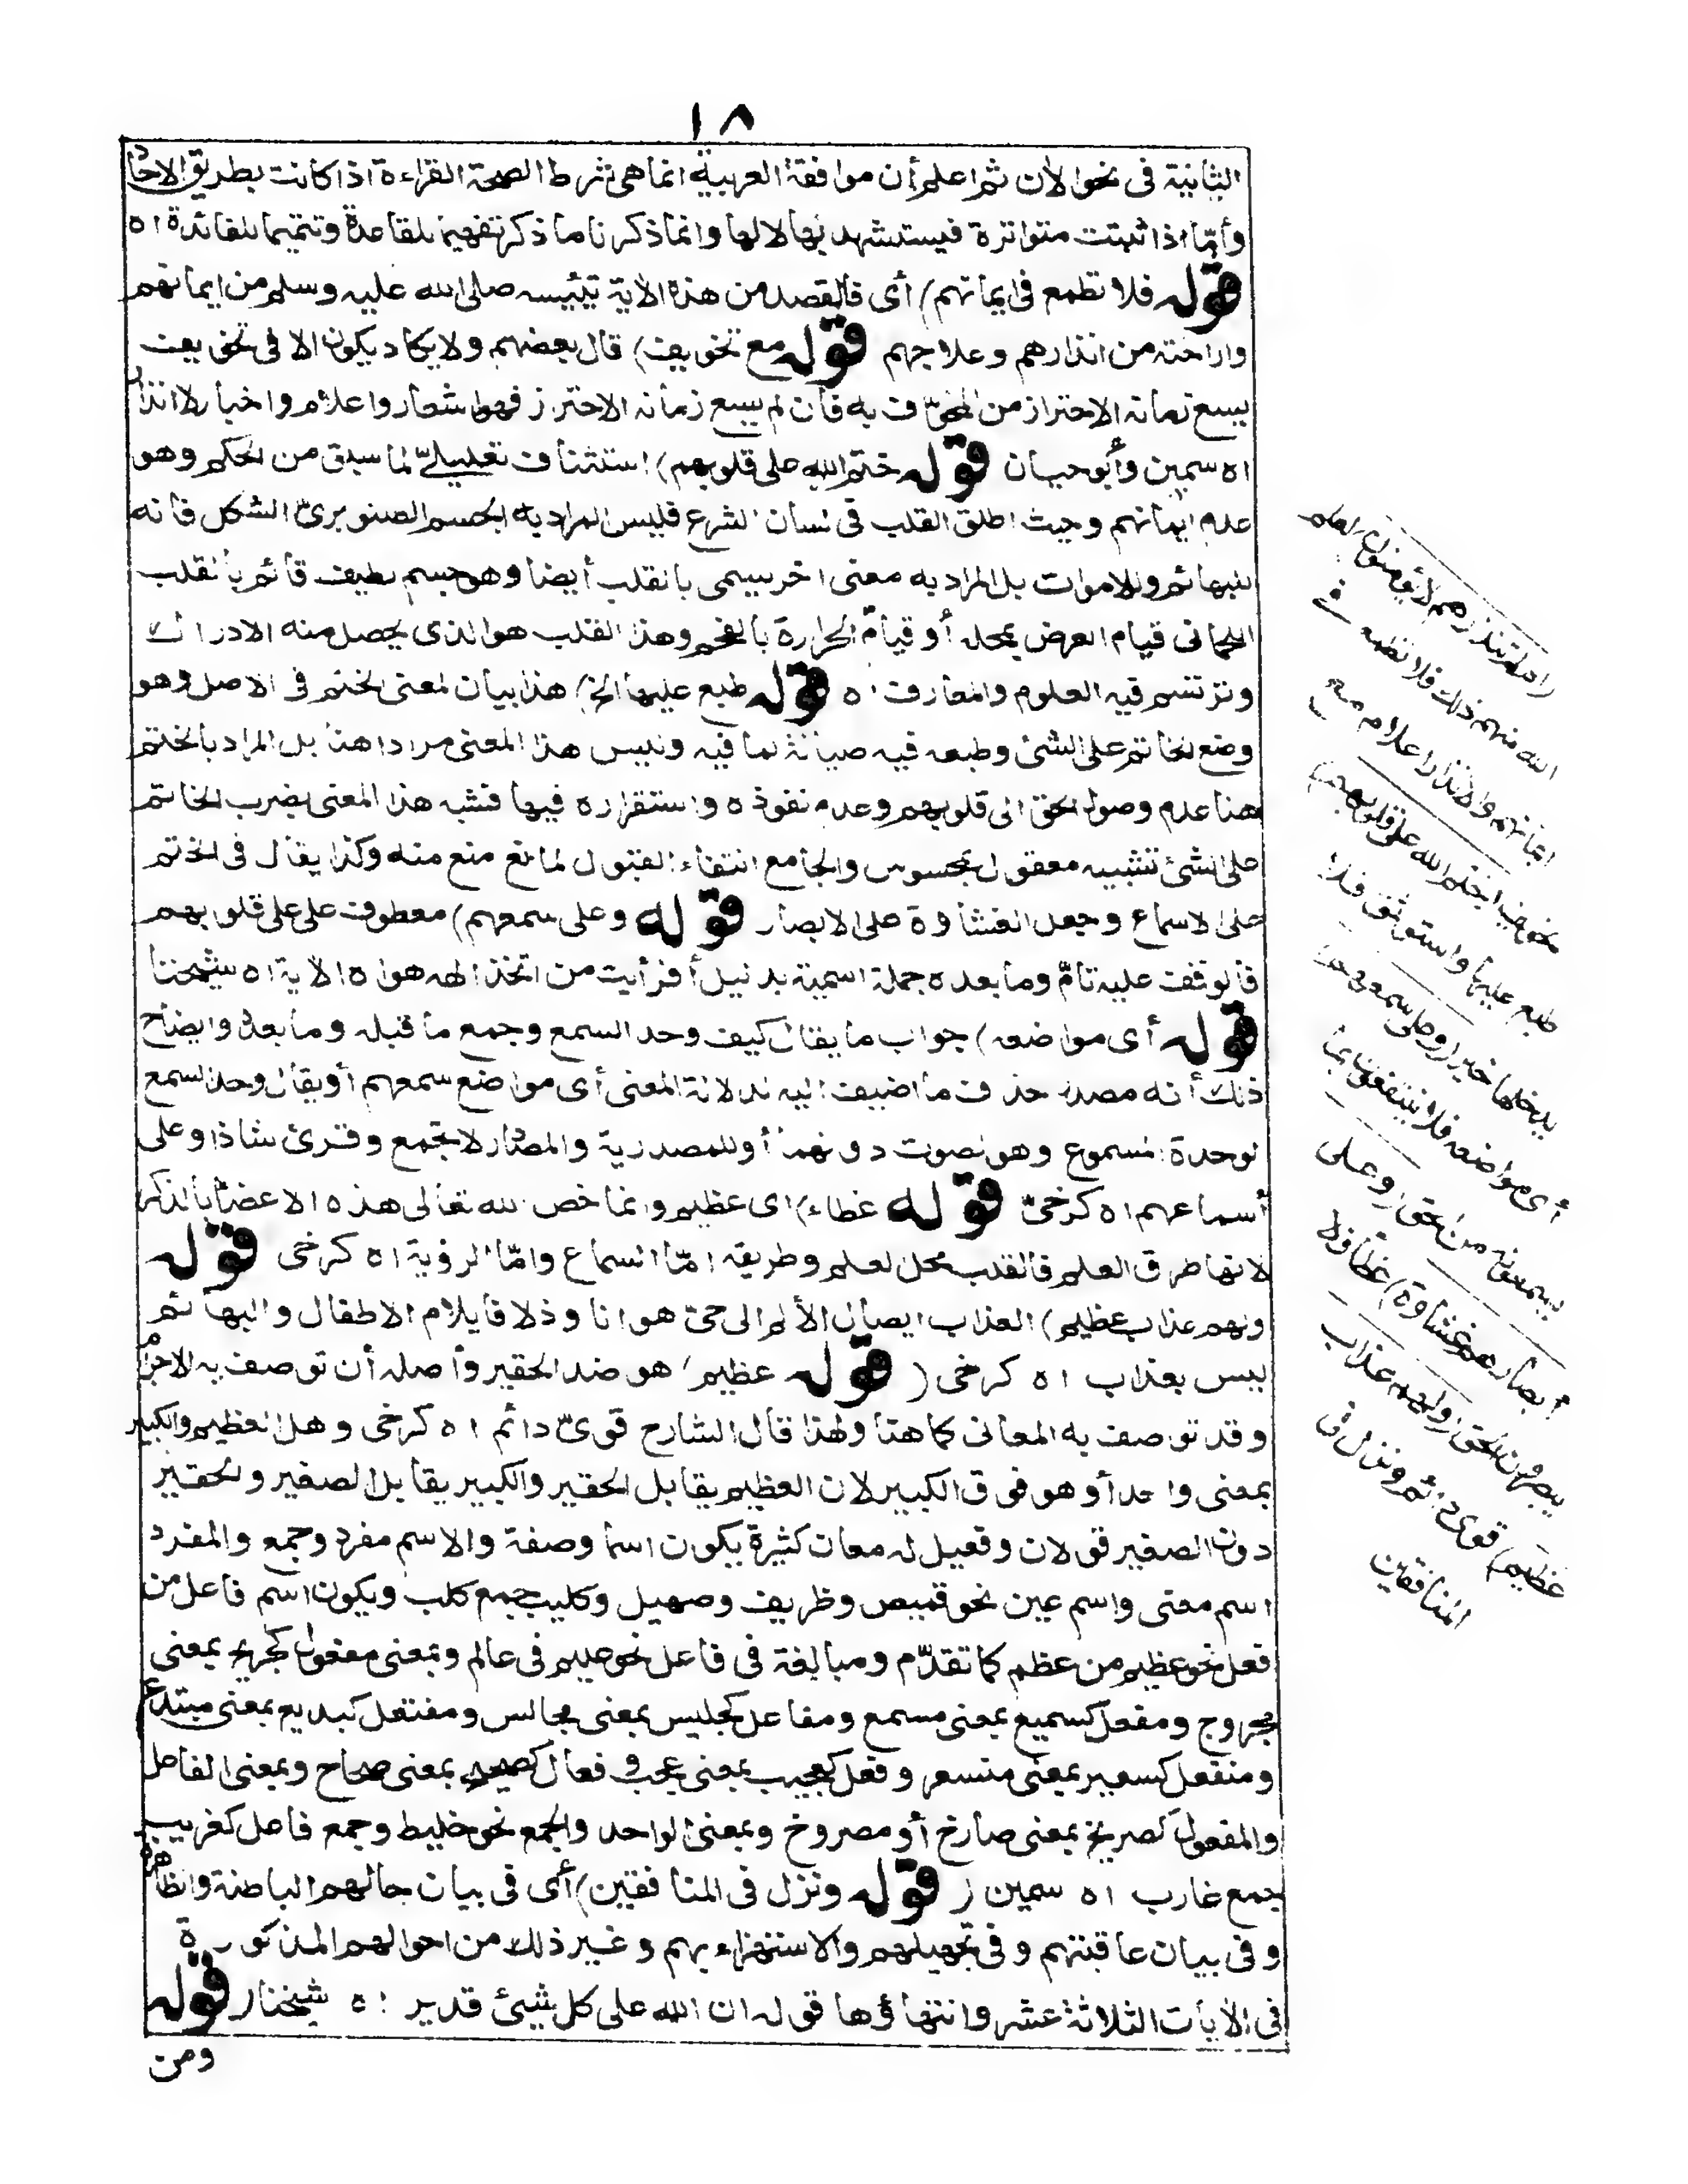 ١٨
الثانية فى نحو الآن ثم اعلم أن موافقة العربية انما هى شرط الصحة القراءة اذا كانت بطريق الاحاد
وأما اذا ثبتت متواترة فيستشهد بها لا لها وانما ذكرنا ما ذكر تفهيما للقاعدة وتتميما للفائدة اه
قوله فلا تطمع فى ايمانهم) أى فالقصد من هذه الآية تيئيسه صلى الله عليه وسلم من ايمانهم
واراحته من انذارهم وعلاجهم قوله مع تخويف) قال بعضهم ولا يكاد يكون الا فى تخويف
يسع زمانه الاحتراز من المخوّف به فان لم يسع زمانه الاحتراز فهو اشعار واعلام واخبار لا انذار
اه سمين وأبو حيان قوله ختم الله على قلوبهم) استئناف تعليلىّ لما سبق من الحكم وهو
عدم ايمانهم وحيث اطلق القلب فى لسان الشرع فليس المراد به الجسم الصنوبرىّ الشكل فانه
للبهائم وللاموات بل المراد به معنى اخر يسمى بالقلب أيضا وهو جسم لطيف قائم بالقلب
اللحمانى قيام العرض بمحله أو قيام الحرارة بالفحم وهذا القلب هو الذى يحصل منه الادراك
وترتسم فيه العلوم والمعارف اه قوله طبع عليها الخ) هذا بيان لمعنى الختم فى الاصل وهو
وضع الخاتم على الشئ وطبعه فيه صيانة لما فيه وليس هذا المعنى مرادا هنا بل المراد بالختم
هنا عدم وصول الحق الى قلوبهم وعدم نفوذه واستقراره فيها فشبه هذا المعنى بضرب الخاتم
على الشئ تشبيه معقول بمحسوس والجامع انتفاء القبول لمانع منع منه وكذا يقال فى الختم
على الاسماع وجعل الغشاوة على الابصار قوله وعلى سمعهم) معطوف على على قلوبهم
فالوقف عليه تامّ وما بعده جملة اسمية بدليل أفرأيت من اتخذ الهه هواه الآية اه شيخنا
قوله أى مواضعه) جواب ما يقال كيف وحد السمع وجمع ما قبله وما بعده وايضاح
ذلك أنه مصدر حذف ما اضيف اليه لدلالة المعنى أى مواضع سمعهم أو يقال وحد السمع
لوحدة المسموع وهو الصوت دونهما أو للمصدرية والمصادر لا تجمع وقرئ شاذا وعلى
أسماعهم اه كرخىّ قوله غطاء) اى عظيم وانما خص الله تعالى هذه الاعضاء بالذكر
لانها طرق العلم فالقلب محل العلم وطريقه امّا السماع وامّا الرؤية اه كرخى قوله
ولهم عذاب عظيم) العذاب ايصال الألم الى حىّ هوانا وذلا فايلام الاطفال والبهائم
ليس بعذاب اه كرخى (قوله عظيم) هو ضد الحقير وأصله أن توصف به الاجرام
وقد توصف به المعانى كما هنا ولهذا قال الشارح قوىّ دائم اه كرخى وهل العظيم والكبير
بمعنى واحد أو هو فوق الكبير لان العظيم يقابل الحقير والكبير يقابل الصغير والحقير
دون الصغير قولان وفعيل له معان كثيرة يكون اسما وصفة والاسم مفرد وجمع والمفرد
اسم معنى واسم عين نحو قميص وظريف وصهيل وكليب جمع كلب ويكون اسم فاعل من
فعل نحو عظيم من عظم كما تقدّم ومبالغة فى فاعل نحو عليم فى عالم وبمعنى مفعول كجريح بمعنى
مجروح ومفعل كسميع بمعنى مسمع ومفاعل كجليس بمعنى مجالس ومفتعل كبديع بمعنى مبتدع
ومنفعل كسعير بمعنى منسعر وفعل كعجيب بمعنى عجب وفعال كصحيح بمعنى صحاح وبمعنى الفاعل
والمفعول كصريخ بمعنى صارخ أو مصروخ وبمعنى الواحد والجمع نحو خليط وجمع فاعل كغريب
جمع غارب اه سمين (قوله ونزل فى المنافقين) أى فى بيان حالهم الباطنة والظاهرة
وفى بيان عاقبتهم وفى تجهيلهم والاستهزاء بهم وغير ذلك من احوالهم المذكورة
فى الآيات الثلاثة عشر وانتهاؤها قوله ان الله على كل شيئ قدير اه شيخنا (قوله
ومن
(ام لم تنذرهم لا يؤمنون) لعلم
الله منهم ذلك فلا تطمع فى
ايمانهم والانذار اعلام مع
تخويف (ختم الله على قلوبهم)
طبع عليها واستوثق فلا
يدخلها خير (وعلى سمعهم)
أى مواضعه فلا ينتفعون بما
يسمعونه من الحق (وعلى
أبصارهم غشاوة) غطاء فلا
يبصرون الحق (ولهم عذاب
عظيم) قوى دائم ونزل فى
المنافقين